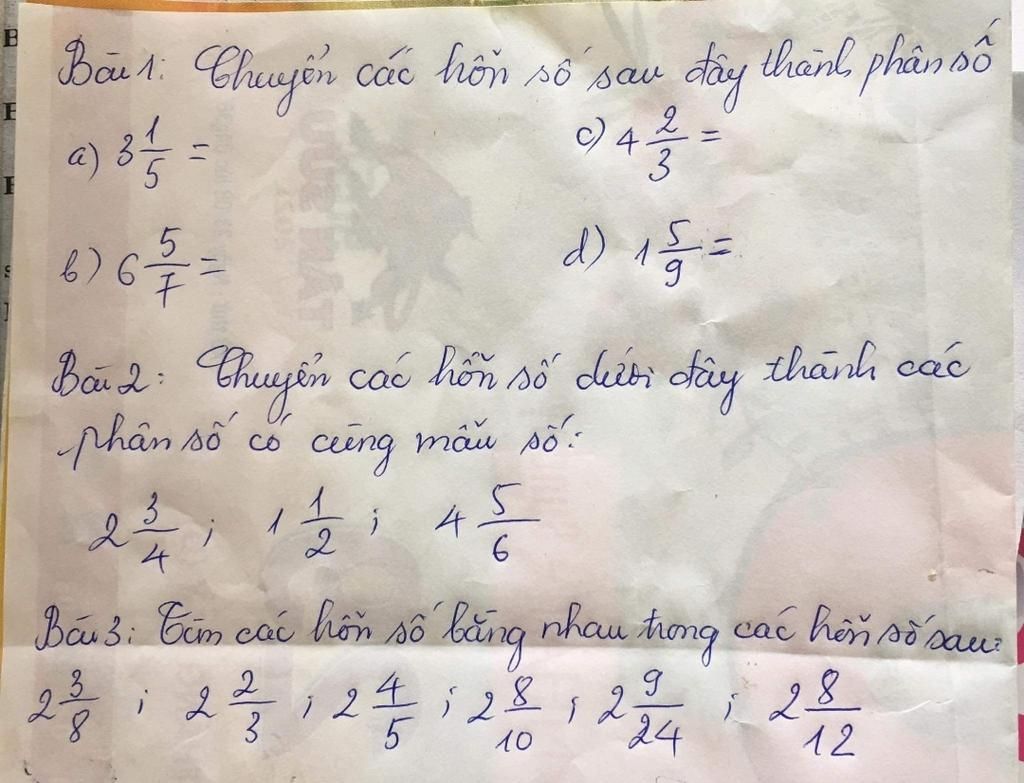 Bài 1: Chuyển các hỗn số sau đây thành phân số
a) 3 1/5 = c) 4 2/3 =
b) 6 5/7 = d) 1 5/9 =
Bài 2: Chuyển các hỗn số dưới đây thành các
phân số có cùng mẫu số:
2 3/4 ; 1 1/2 ; 4 5/6
Bài 3: Tìm các hỗn số bằng nhau trong các hỗn số sau:
2 3/8 ; 2 2/3 ; 2 4/5 ; 2 8/10 ; 2 9/24 ; 2 8/12